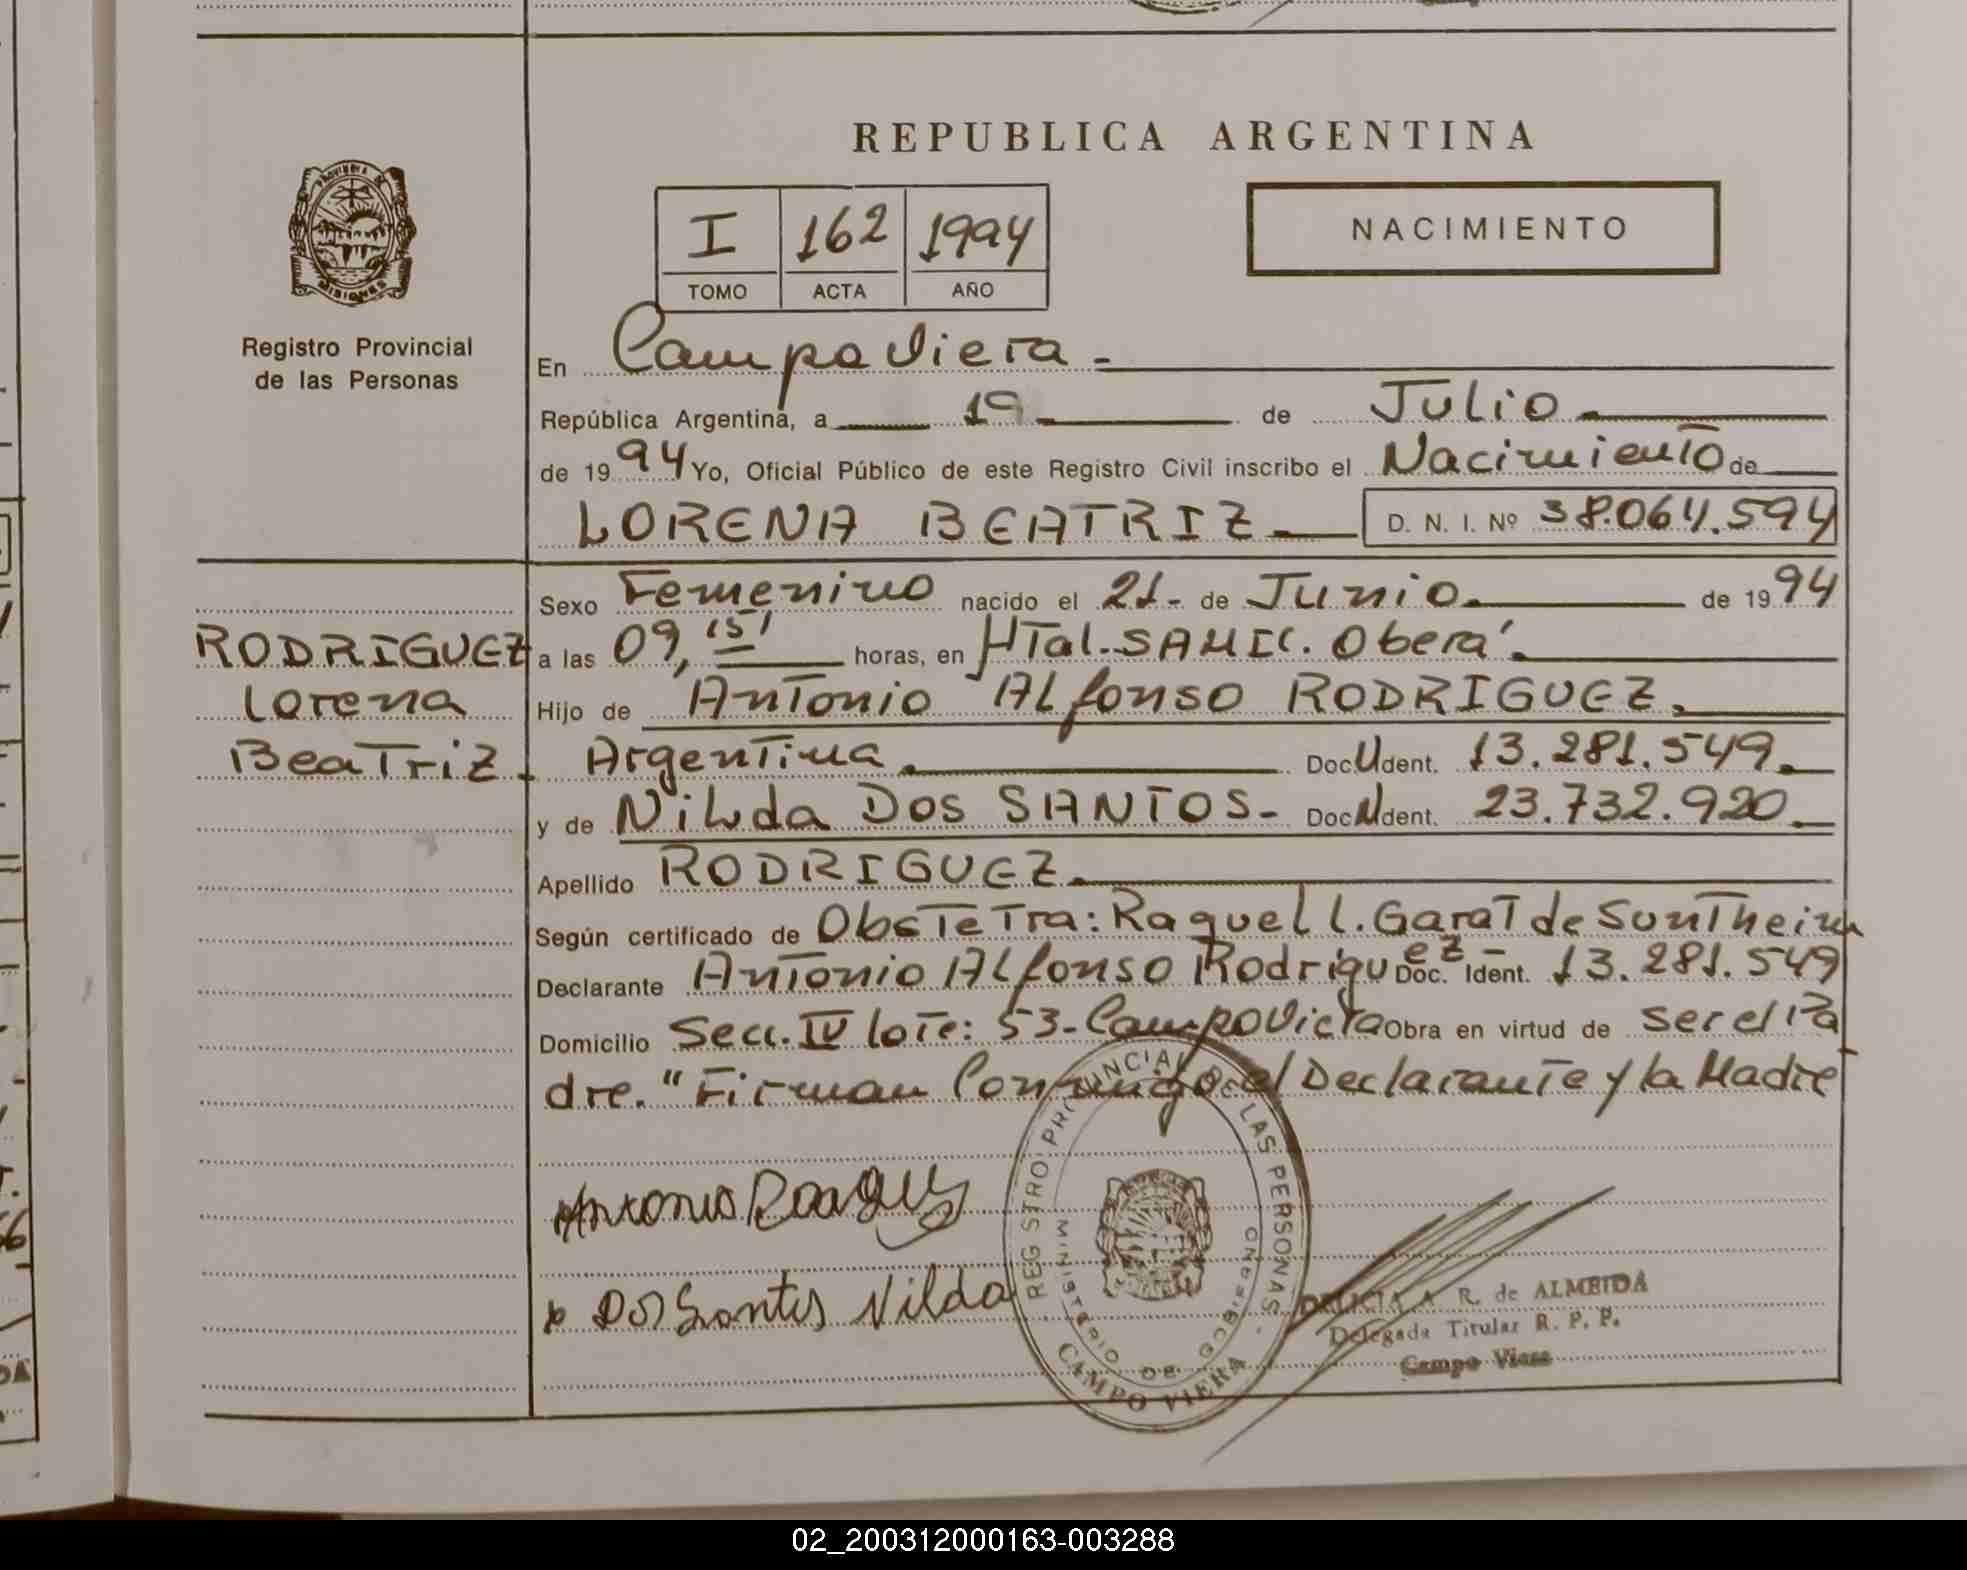 REPUBLICA ARGENTINA
PROVINCIA DE
MISIONES
Registro Provincial
de las Personas
I 162 1994
TOMO ACTA AÑO
NACIMIENTO
En Campo Viera -
República Argentina, a 19 de Julio
de 1994 Yo, Oficial Público de este Registro Civil inscribo el Nacimiento de
LORENA BEATRIZ D. N. I. Nº 38.064.594
RODRIGUEZ
Lorena
Beatriz.
Sexo Femenino nacido el 21- de Junio. de 1994
a las 09,15' horas, en HTal. SAMIC. Oberá.
Hijo de Antonio Alfonso RODRIGUEZ.
Argentina. Doc. Ident. 13.281.549.
y de Nilda DOS SANTOS- Doc. Ident. 23.732.920.
Apellido RODRIGUEZ.
Según certificado de Obstetra: Raquel L. Garat de Suntheim
Declarante Antonio Alfonso Rodriguez - Doc. Ident. 13.281.549
Domicilio Secc. IV lote: 53- Campo Viera Obra en virtud de ser el Pa
dre. "Firman Conmigo el Declarante y la Madre
Antonio
Dos Santos Nilda
REGISTRO PROVINCIAL DE LAS PERSONAS
MINISTERIO DE GOBIERNO
CAMPO VIERA
DELICIA A. R. de ALMEIDA
Delegada Titular R. P. P.
Campo Viera
02_200312000163-003288